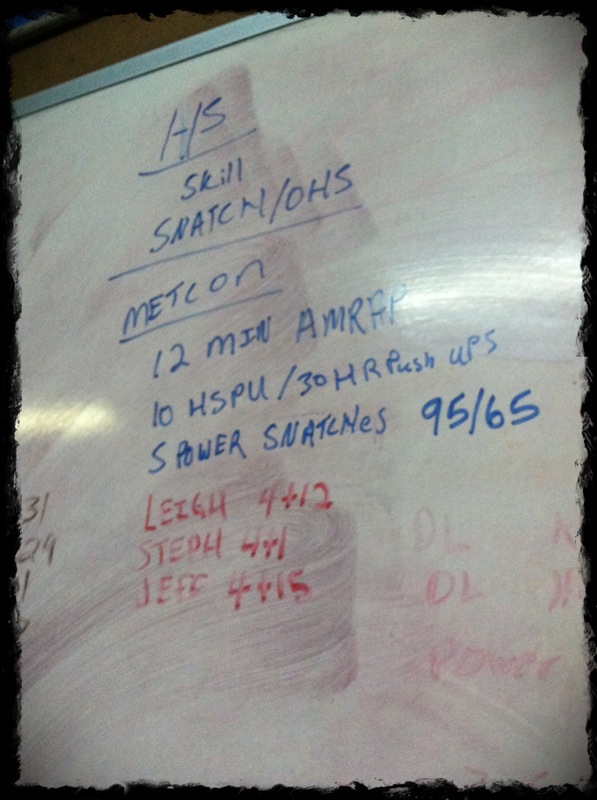 H/S
Skill
SNATCH/OHS
METCON
12 MIN AMRAP
10 HSPU/30 HR Push UPS
5 POWER SNATCHes 95/65
LEIGH 4+12
STEPH 4+1
JEFF 4+15
31
29
DL K
DL
Power